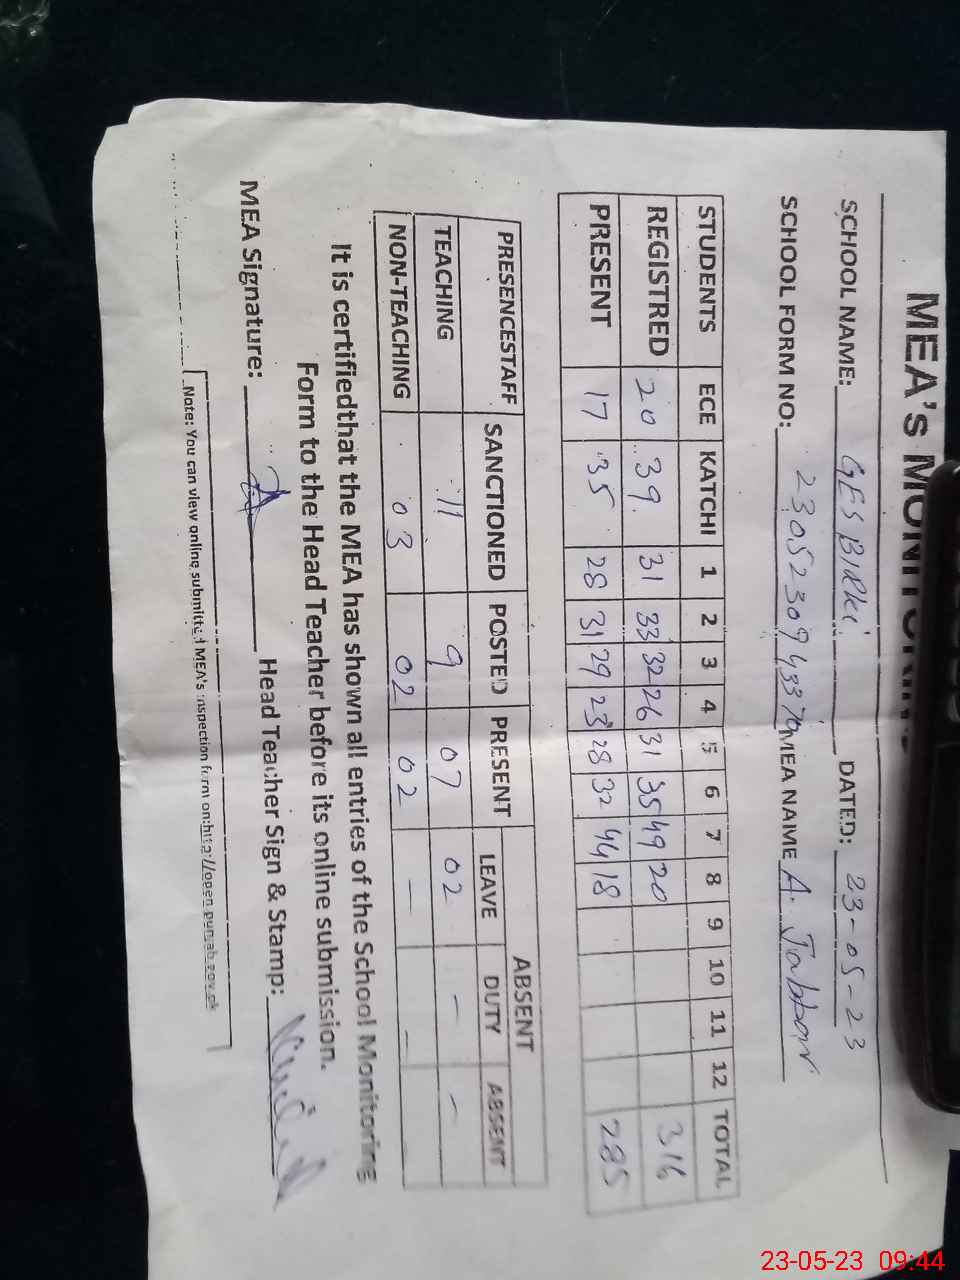 MEA's MONITORING
SCHOOL NAME: GES BIRKi DATED: 23-05-23
SCHOOL FORM NO: MEA NAME A. Jabbar
STUDENTS ECE KATCHI 1 2 3 4 5 6 7 8 9 10 11 12 TOTAL
REGISTRED 20 39 31 33 32 26 31 35 49 20 316
PRESENT 17 35 28 31 29 23 28 32 44 18 285
PRESENCESTAFF SANCTIONED POSTED PRESENT ABSENT
LEAVE DUTY ABSENT
TEACHING 11 9 07 02 - -
NON-TEACHING 03 02 02 - -
It is certifiedthat the MEA has shown all entries of the School Monitoring
Form to the Head Teacher before its online submission.
MEA Signature: Head Teacher Sign & Stamp:
Note: You can view online submitted MEA's inspection form on:http://open.punjab.gov.pk
23-05-23 09:44